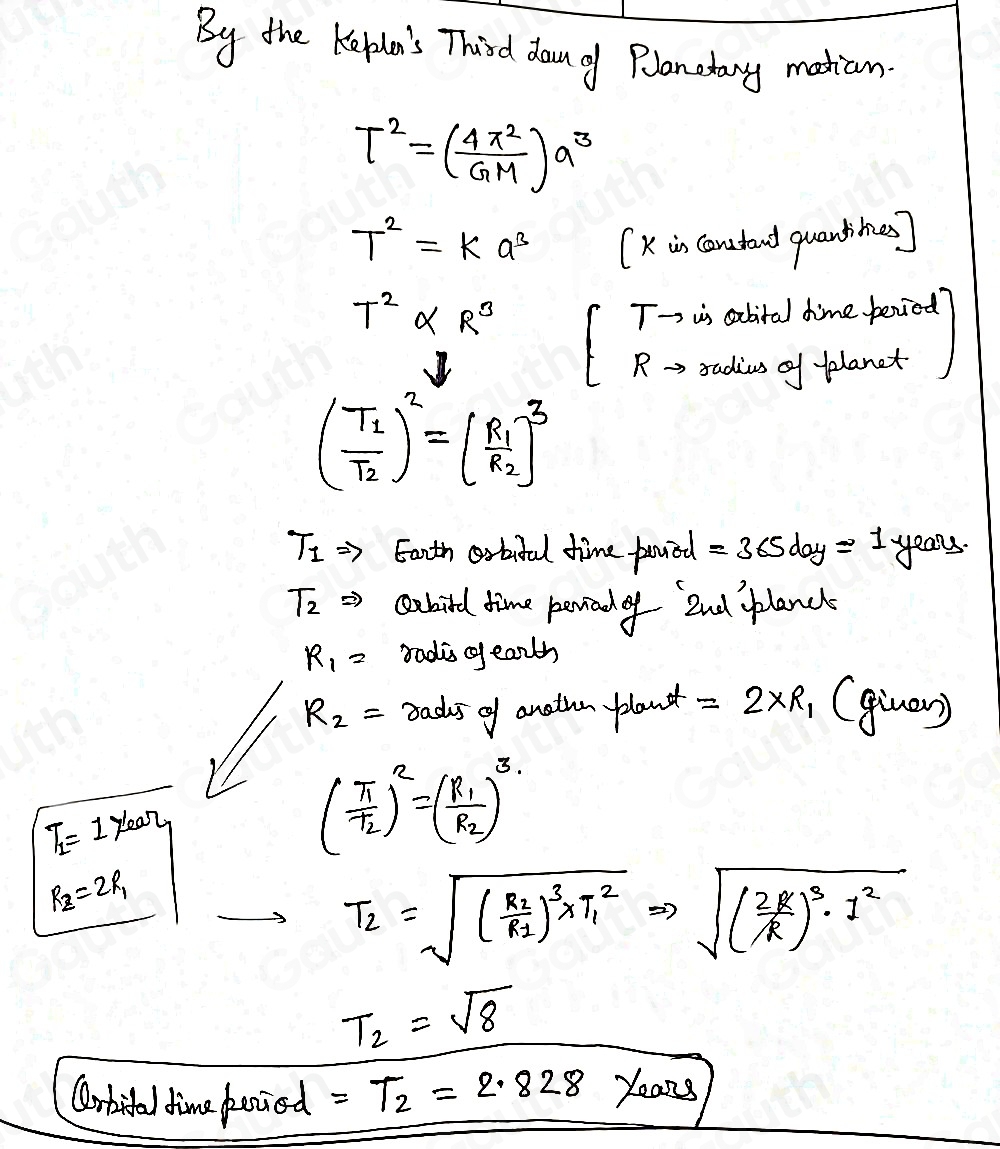 By the Kepler's Third Law of Planetary motion.
T² = (4π²/GM) a³
T² = K a³ [K is constant quantitres]
T² ∝ R³ [T → is orbital time period
R → radius of planet]
(T1/T2)² = [R1/R2]³
T1 ⇒ Earth orbital time period = 365 day = 1 years.
T2 ⇒ Orbitd time period of '2nd' planet
R1 = radis of earth
R2 = radis of another planet = 2×R1 (given)
(T1/T2)² = (R1/R2)³.
T1 = 1 year
R2 = 2R1
→ T2 = √((R2/R1)³ × T1²) ⇒ √((2R/R)³ · 1²)
T2 = √8
Orbital time period = T2 = 2.828 Years
Gauth